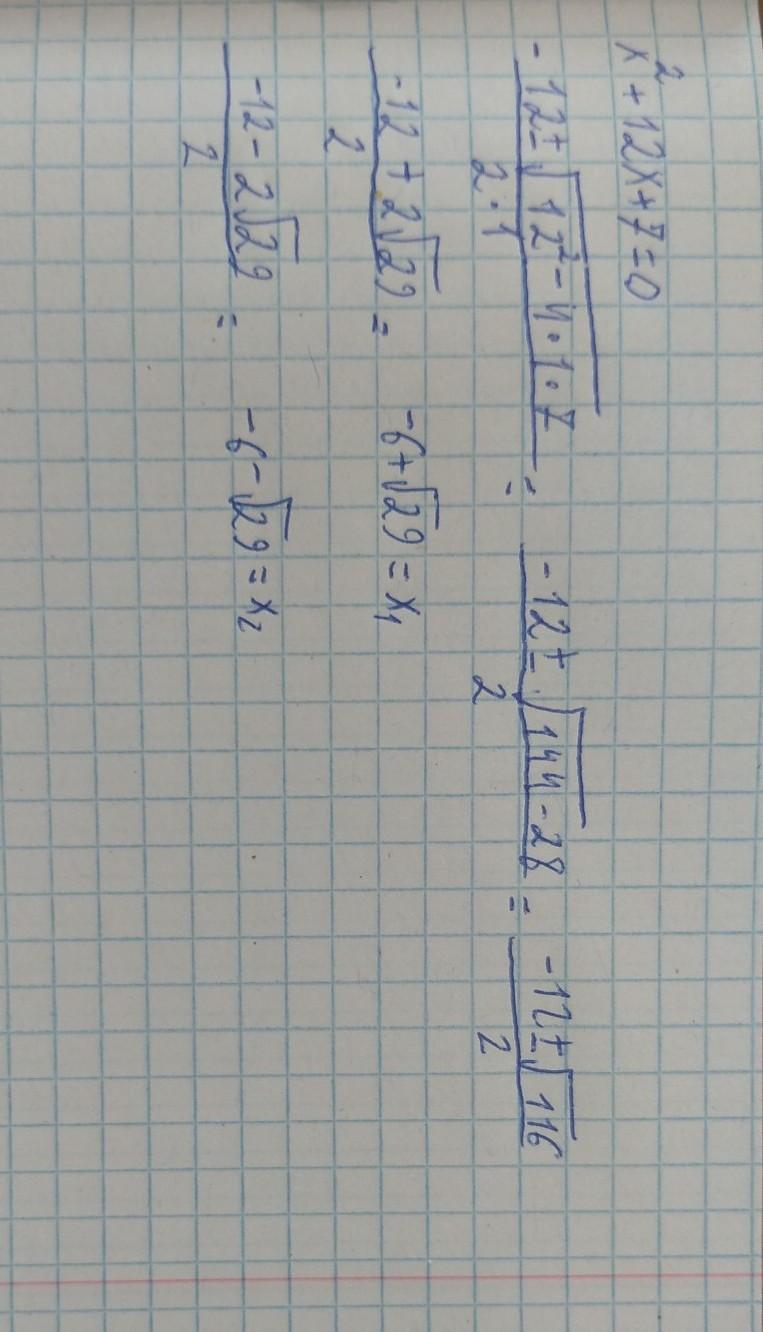 x² + 12x + 7 = 0
(-12 ± √(12² - 4 · 1 · 7)) / (2 · 1) = (-12 ± √(144 - 28)) / 2 = (-12 ± √116) / 2
(-12 + 2√29) / 2 = -6 + √29 = x₁
(-12 - 2√29) / 2 = -6 - √29 = x₂